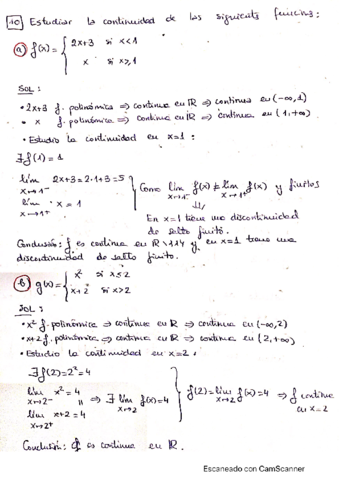 10 Estudiar la continuidad de las siguients funcions:
a) f(x) = { 2x+3 si x<1
x si x≥1
SOL:
• 2x+3 f. polinómica ⇒ continua en ℝ ⇒ continua en (-∞,1)
• x f. polinómica ⇒ continua en ℝ ⇒ continua en (1,+∞)
• Estudio la continuidad en x=1:
∃f(1)=1
lím x→1⁻ 2x+3=2·1+3=5
lím x→1⁺ x=1
Como lím x→1⁻ f(x) ≠ lím x→1⁺ f(x) y finitos
⇓
En x=1 tiene una discontinuidad
de salto finito.
Conclusión: f es continua en ℝ\{1} y en x=1 tiene una
discontinuidad de salto finito.
b) g(x) = { x² si x≤2
x+2 si x>2
SOL:
• x² f. polinómica ⇒ continua en ℝ ⇒ continua en (-∞,2)
• x+2 f. polinómica ⇒ continua en ℝ ⇒ continua en (2,+∞)
• Estudio la continuidad en x=2:
∃f(2)=2²=4
lím x→2⁻ x²=4
lím x→2⁺ x+2=4
⇒ ∃ lím x→2 f(x)=4
f(2)=lím x→2 f(x)=4 ⇒ f continua
en x=2
Conclusión: f es continua en ℝ.
Escaneado con CamScanner